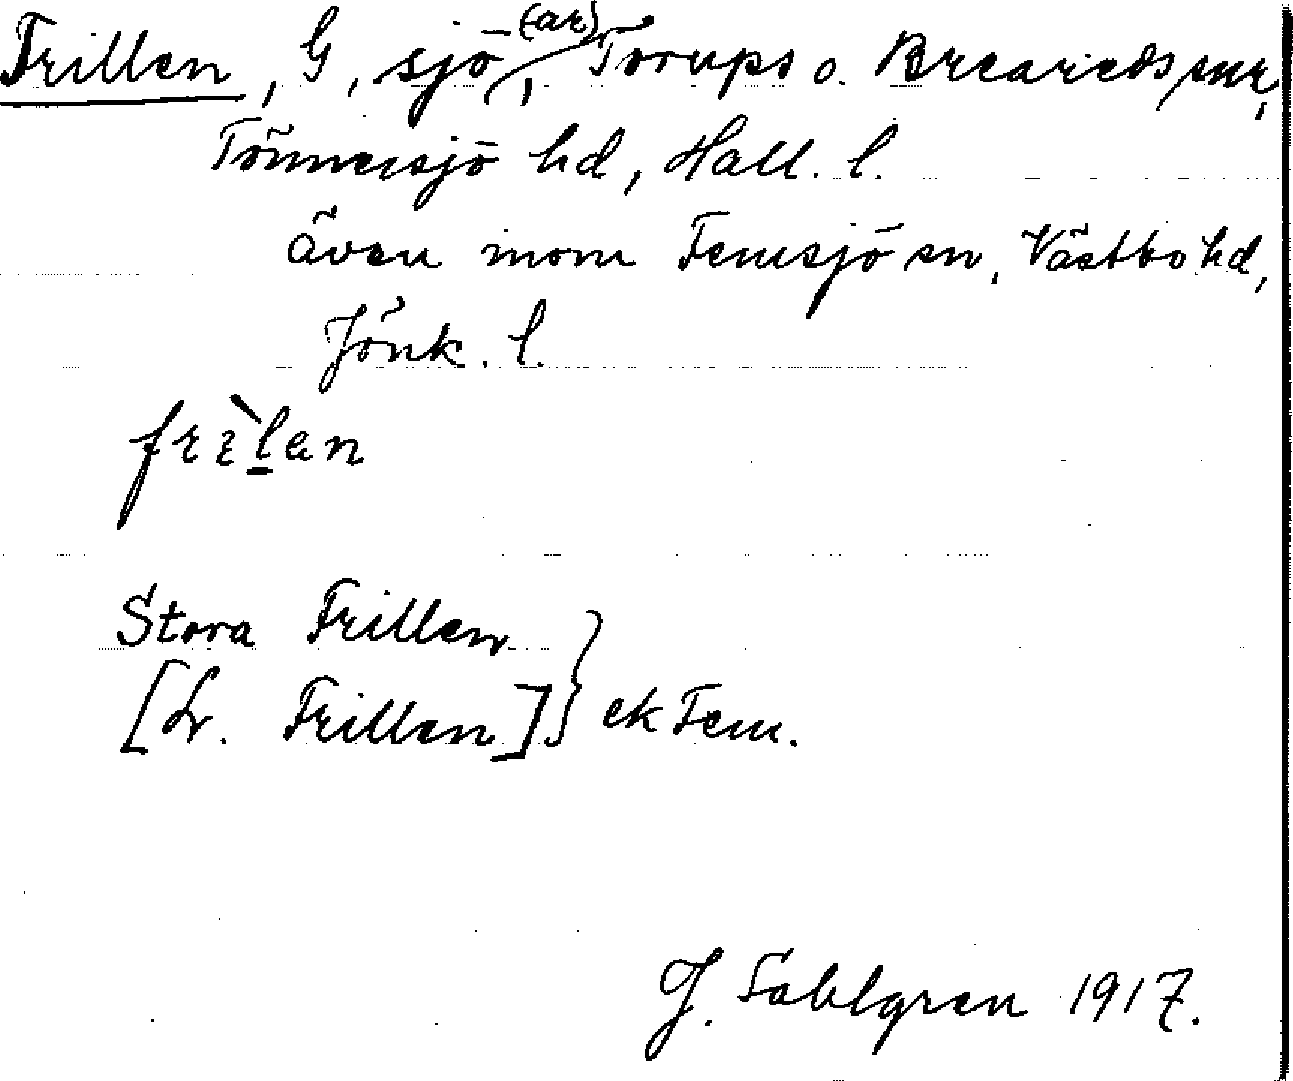 Frillen, G, sjö(ar), Torups o. Breareds snr,
Tönnersjö hd, Hall. l.
även inom Femsjö sn, Västbo hd,
Jönk. l.
frìlan
Stora Frillen
[L. Frillen] } ek Fem.
J. Sahlgren 1917.